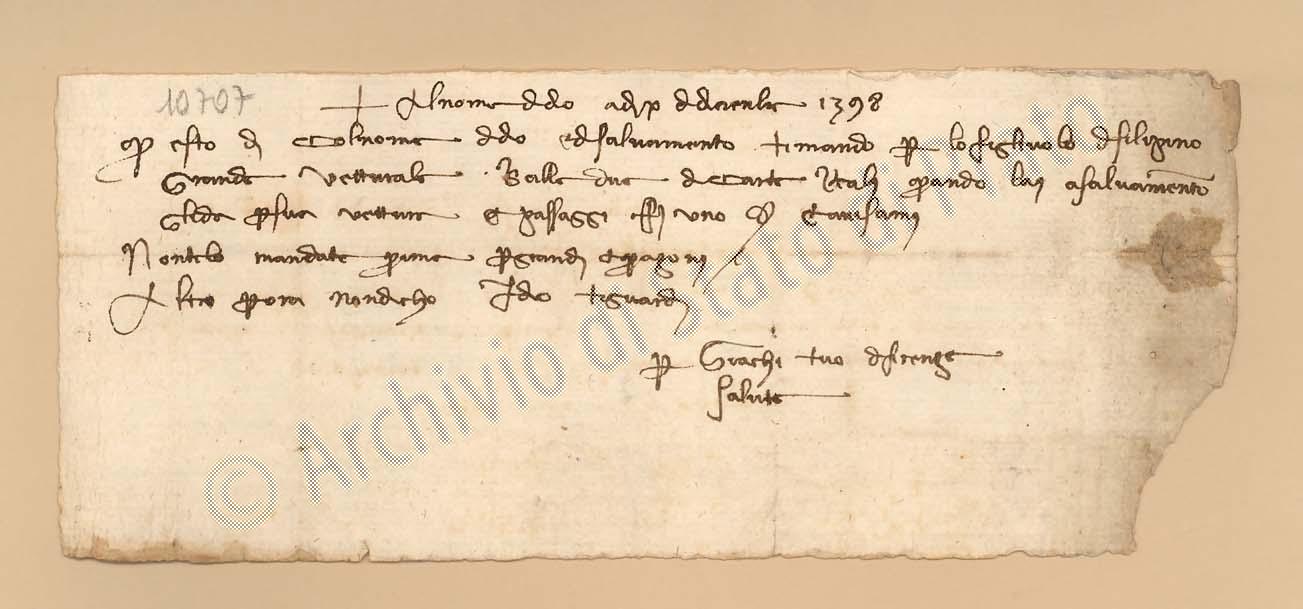 10707
+ Al nome di dio adi x di dicienbre 1398
p esto di col nome di dio e di salvamento ti mando p lo figliuolo di filippino
Grande vetturale Balle due di carte Reali quando lai a salvamento
gli da p sua vettura e passaggi f uno s e avisami
Non telo mandate prima p
Altro p ora non dicho Idio ti guardi
p tuo di firenze
salute
© Archivio di Stato di Prato